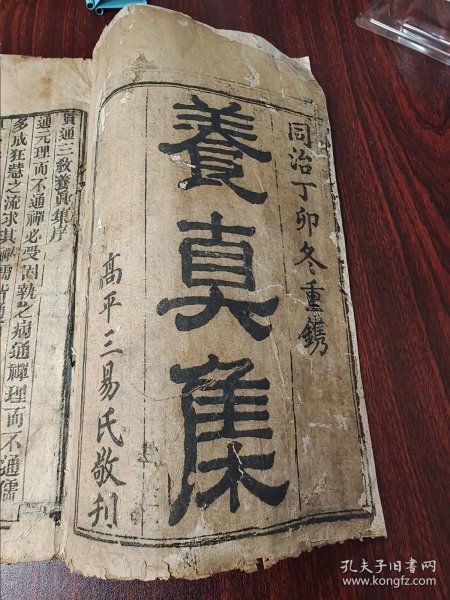 同治丁卯冬重鐫
養真集
高平三易氏敬刊
貫通三教養真集序
通元理而不通禪必受固執之病通禪理而不通儒
多成狂慧之流求其禪儒
孔夫子旧书网
www.kongfz.com